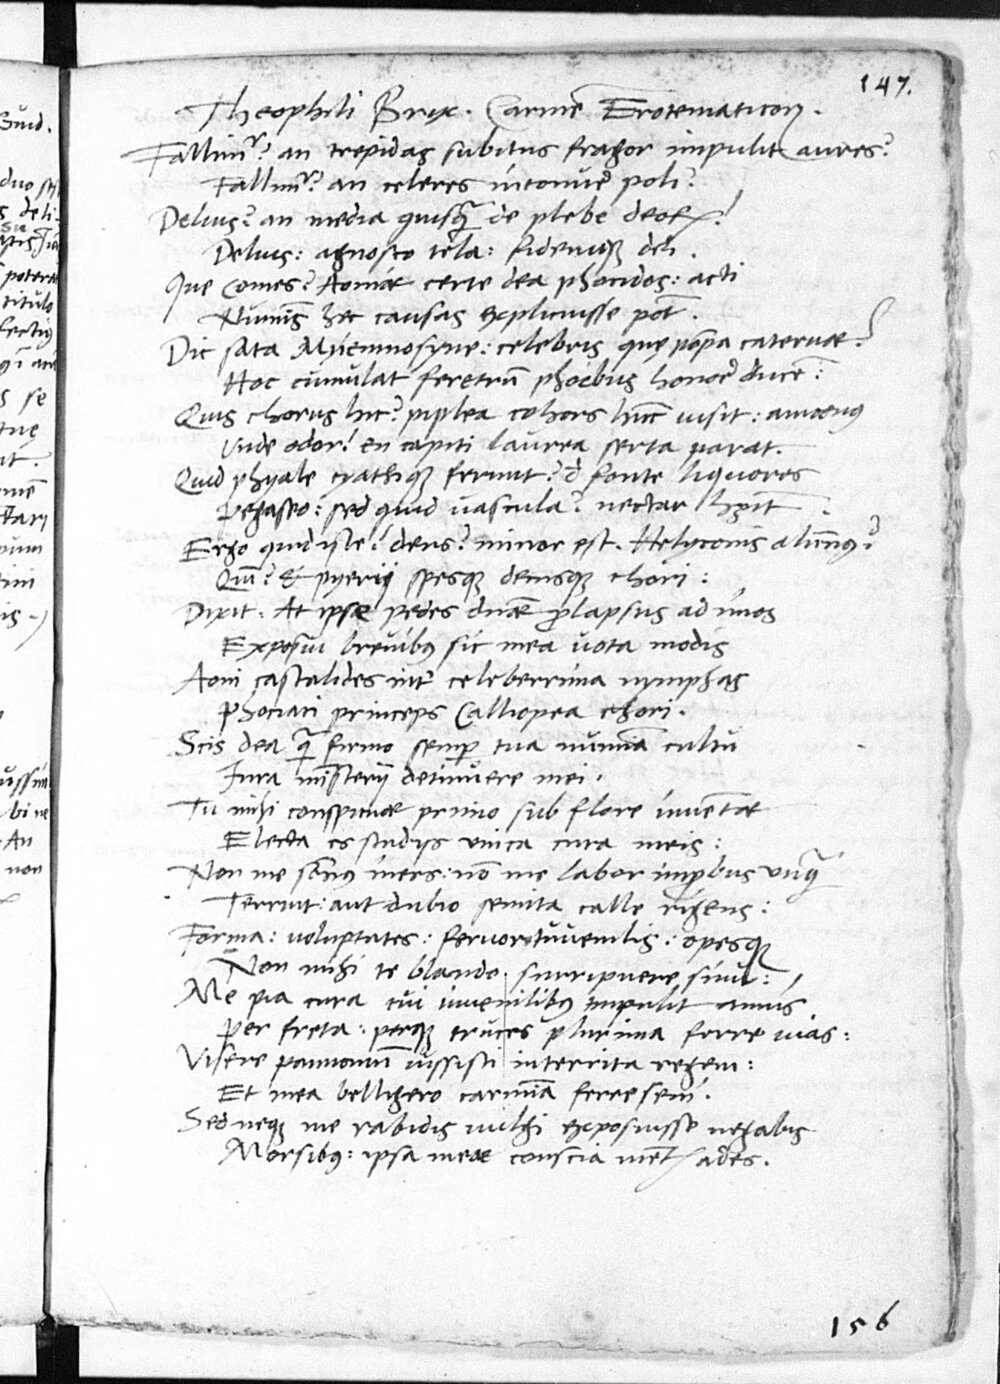 147.
Theophili Brix. Carmē Erotematicon.
Fallimʳ? an trepidas subitus fragor impulit aures?
Fallimʳ? an celeres intonuēr poli?
Delius? an media quisq̄ de plebe deoꝝ?
Delius: agnosco tela: fidemqꝫ dei.
Que comes? Aoniae certe dea phocidos: acti
Numīs hec causas explicuisse pōt.
Dic sata Mnemosyne: celebris quę pōpa catervae?
Hoc cumulat feretrū phoebus honorē ducē?
Quis chorus hic? piplea cohors hūc visit: amoenꝰ
Unde odor? en capiti laurea serta parat.
Quid phyale cyathiqꝫ ferunt? d̄ fonte liquores
Pegaseo: sed quid vascula? nectar hn̄t.
Ergo quid iste? deus? minor est. Helyconis alūnꝰ?
Quī? & pyerij spesqꝫ deusqꝫ chori:
Dixit. At ipse pedes diuae ꝓlapsus ad imos
Exposui brevibꝰ sic mea vota modis
Aoni castalides int̄ celeberrima nymphas
Phociaci princeps Calliopea chori.
Scis dea q̄ firmo semꝑ tua numīa cultu
Iura mīsterij detinuere mei.
Tu mihi conspicuae primo sub flore iuventae
Electa es studijs unica cura meis:
Non me somnꝰ iners: nō me labor improbus unq̄
Terruit: aut dubio semita calle rigens:
Forma: voluptates: fervor iuvenilis: opesqꝫ
Non mihi te blando surripuere sinu:
Me pia cura tui iuvenilibꝰ impulit annis
Per freta: perqꝫ truces plurima ferre vias:
Visere pannoniū iussisti interrita regem:
Et mea belligero carmīa ferre seni.
Sed neqꝫ me rabidis vulgi exposuisse negabis
Morsibꝰ: ipsa meae conscia mentꝭ ades.
156